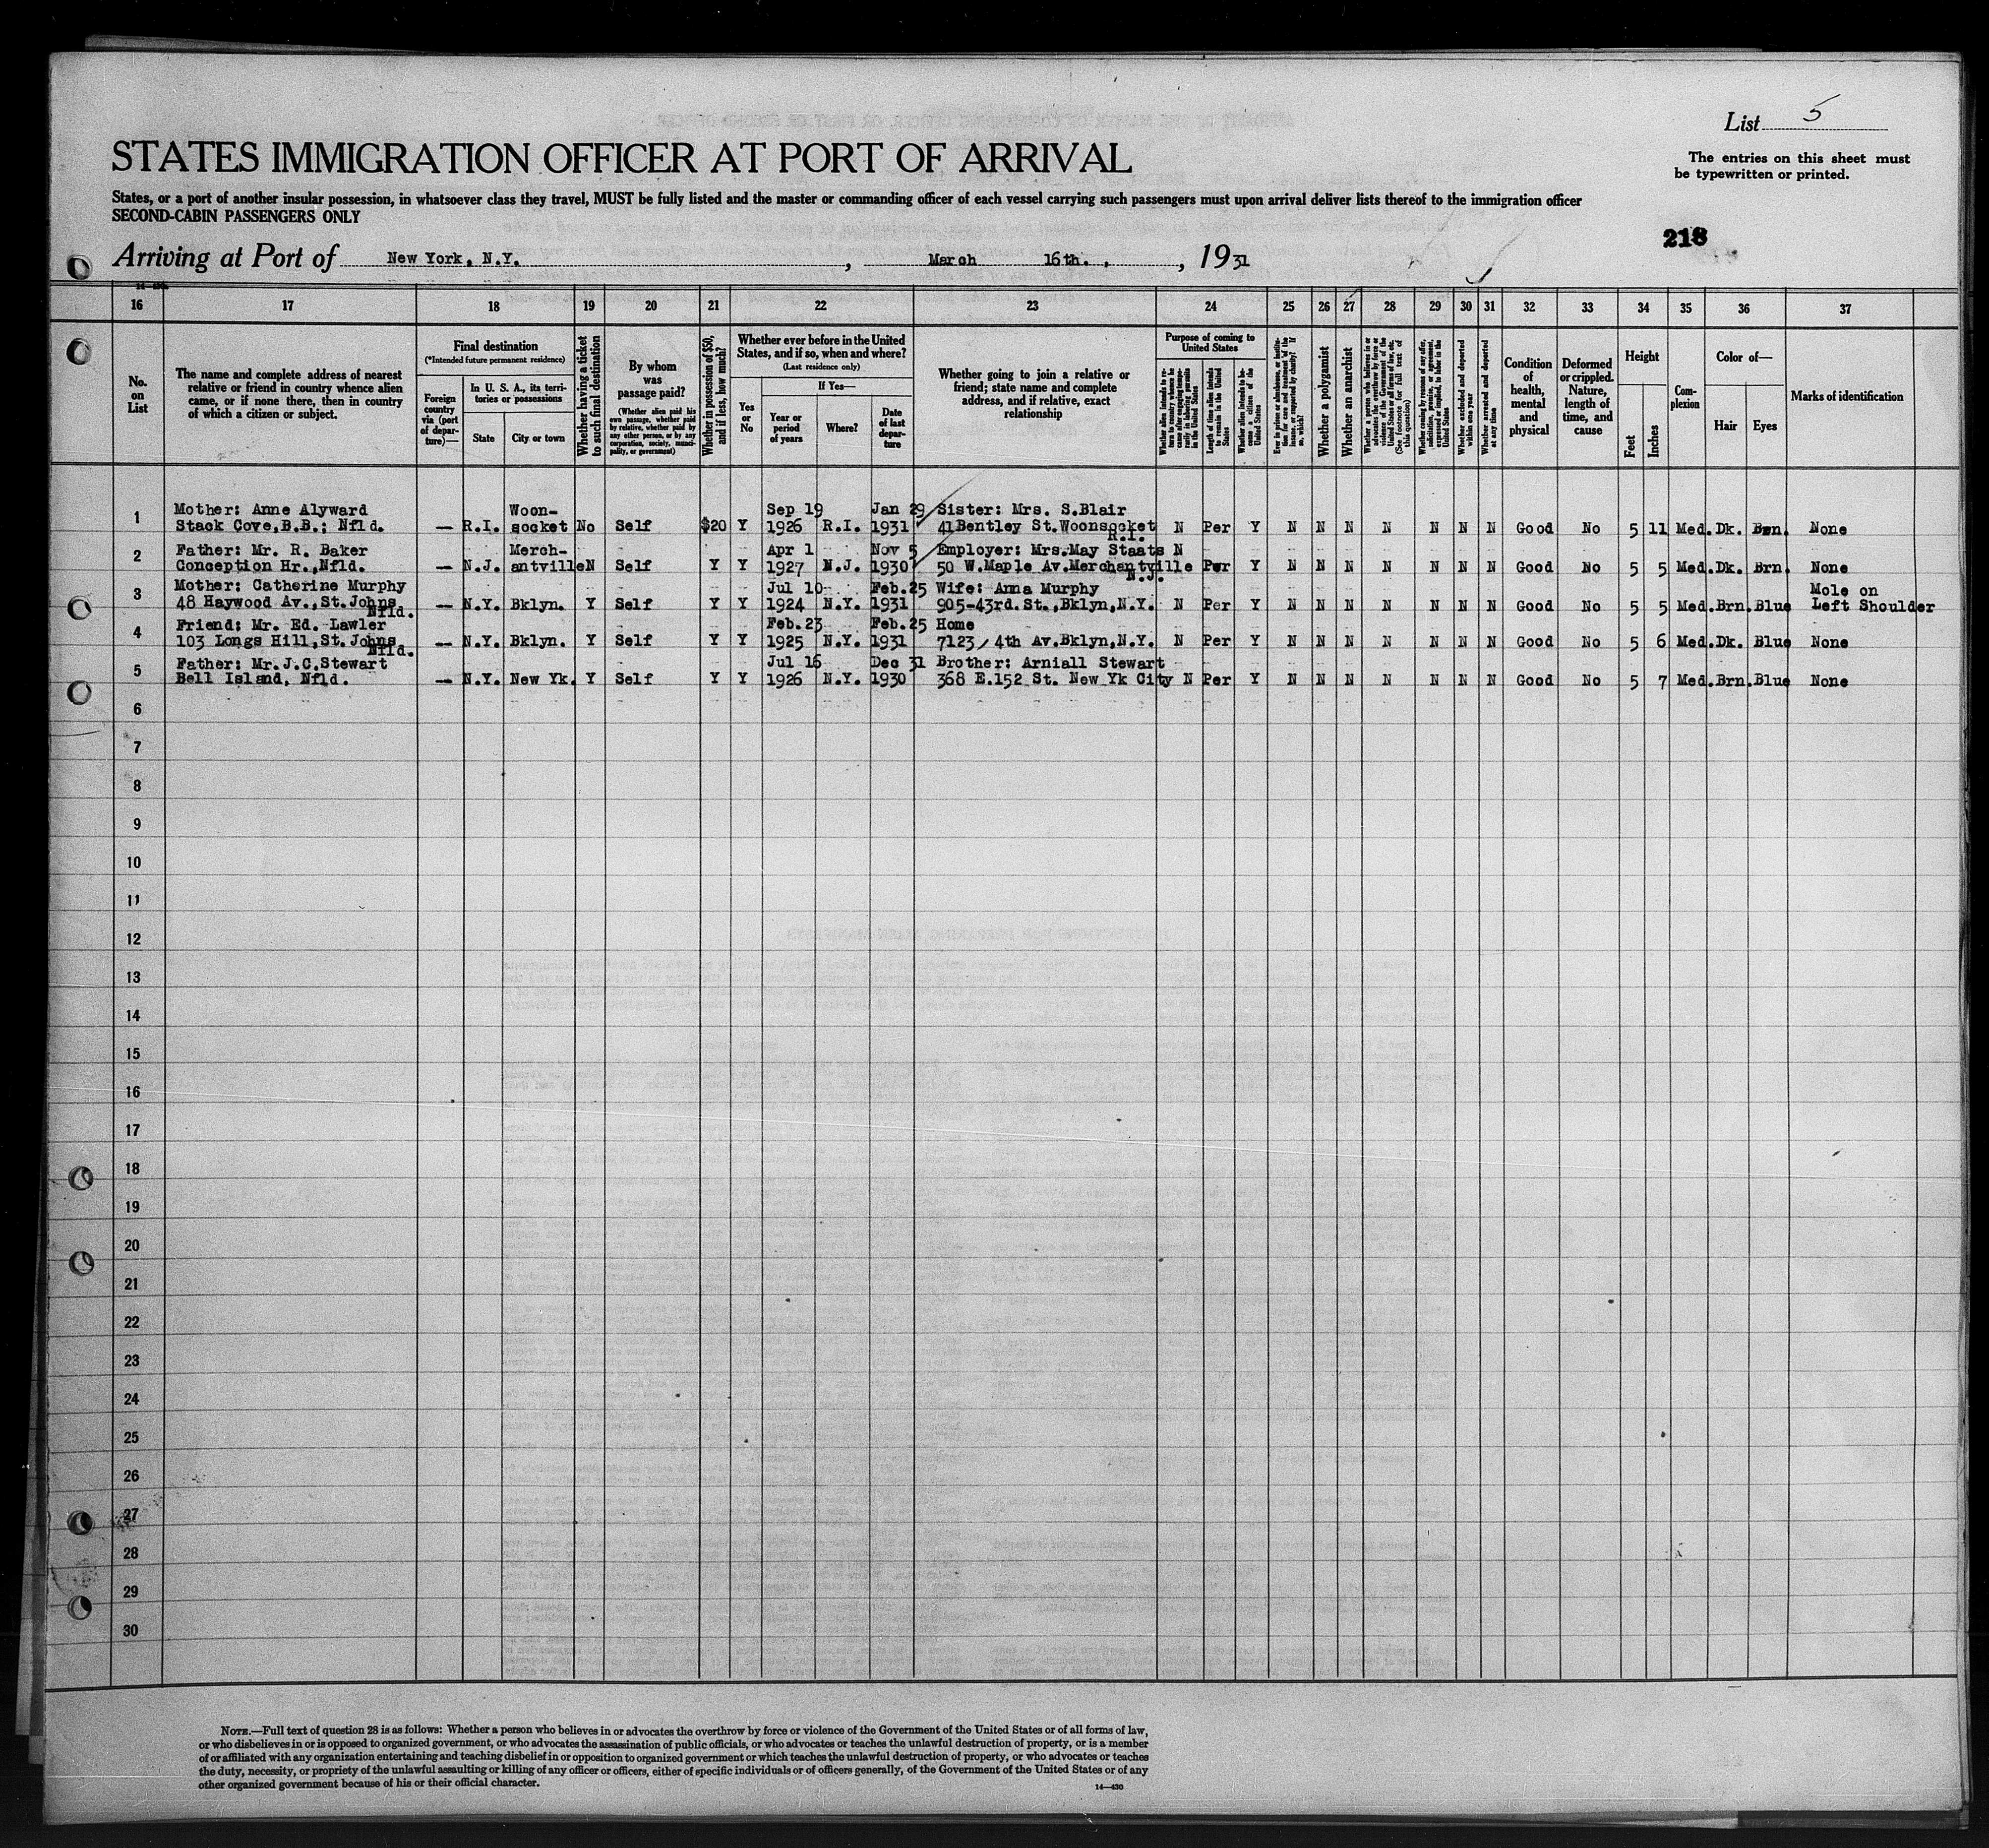 List 5
STATES IMMIGRATION OFFICER AT PORT OF ARRIVAL
The entries on this sheet must
be typewritten or printed.
States, or a port of another insular possession, in whatsoever class they travel, MUST be fully listed and the master or commanding officer of each vessel carrying such passengers must upon arrival deliver lists thereof to the immigration officer
SECOND-CABIN PASSENGERS ONLY
218
Arriving at Port of New York, N.Y. , March 16th. , 1931
16 17 18 19 20 21 22 23 24 25 26 27 28 29 30 31 32 33 34 35 36 37
No. on List
The name and complete address of nearest relative or friend in country whence alien came, or if none there, then in country of which a citizen or subject.
Final destination
(*Intended future permanent residence)
Foreign country via (port of departure)—
In U. S. A., its territories or possessions
State
City or town
Whether having a ticket to such final destination
By whom was passage paid?
(Whether alien paid his own passage, whether paid by relative, whether paid by any other person, or by any corporation, society, municipality, or government)
Whether in possession of $50, and if less, how much?
Whether ever before in the United States, and if so, when and where?
(Last residence only)
Yes or No
If Yes—
Year or period of years
Where?
Date of last departure
Whether going to join a relative or friend; state name and complete address, and if relative, exact relationship
Purpose of coming to United States
Length of time alien intends to remain in the United States
Whether alien intends to become a citizen of the United States
Whether a polygamist
Whether an anarchist
Whether excluded and deported within one year
Whether arrested and deported at any time
Condition of health, mental and physical
Deformed or crippled. Nature, length of time, and cause
Height
Feet
Inches
Complexion
Color of—
Hair
Eyes
Marks of identification
1 Mother: Anne Alyward Woon- Sep 19 Jan 29 Sister: Mrs. S.Blair
Stack Cove,B.B.; Nfld. — R.I. socket No Self $20 Y 1926 R.I. 1931 41Bentley St.Woonsocket N Per Y N N N N N N N Good No 5 11 Med. Dk. Brn. None
R.I.
2 Father: Mr. R. Baker Merch- Apr 1 Nov 5 Employer: Mrs.May Staats N
Conception Hr.,Nfld. — N.J. antville N Self Y Y 1927 N.J. 1930 50 W.Maple Av.Merchantville Per Y N N N N N N N Good No 5 5 Med. Dk. Brn. None
N.J.
3 Mother: Catherine Murphy Jul 10 Feb.25 Wife: Anna Murphy Mole on
48 Haywood Av.,St.Johns — N.Y. Bklyn. Y Self Y Y 1924 N.Y. 1931 905-43rd.St.,Bklyn,N.Y. N Per Y N N N N N N N Good No 5 5 Med. Brn. Blue Left Shoulder
Nfld.
4 Friend: Mr. Ed. Lawler Feb.23 Feb.25 Home
103 Longs Hill,St.Johns — N.Y. Bklyn. Y Self Y Y 1925 N.Y. 1931 7123, 4th Av.Bklyn,N.Y. N Per Y N N N N N N N Good No 5 6 Med. Dk. Blue None
Nfld.
5 Father: Mr.J.C.Stewart Jul 16 Dec 31 Brother: Arniall Stewart
Bell Island, Nfld. — N.Y. New Yk. Y Self Y Y 1926 N.Y. 1930 368 E.152 St. New Yk City N Per Y N N N N N N N Good No 5 7 Med. Brn. Blue None
6
7
8
9
10
11
12
13
14
15
16
17
18
19
20
21
22
23
24
25
26
27
28
29
30
NOTE.—Full text of question 28 is as follows: Whether a person who believes in or advocates the overthrow by force or violence of the Government of the United States or of all forms of law,
or who disbelieves in or is opposed to organized government, or who advocates the assassination of public officials, or who advocates or teaches the unlawful destruction of property, or is a member
of or affiliated with any organization entertaining and teaching disbelief in or opposition to organized government or which teaches the unlawful destruction of property, or who advocates or teaches
the duty, necessity, or propriety of the unlawful assaulting or killing of any officer or officers, either of specific individuals or of officers generally, of the Government of the United States or of any
other organized government because of his or their official character.
14—430